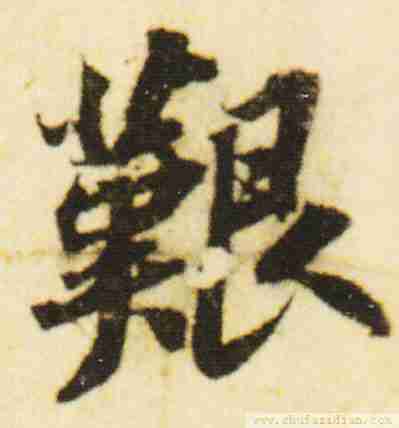 艱
www.shufazidian.com